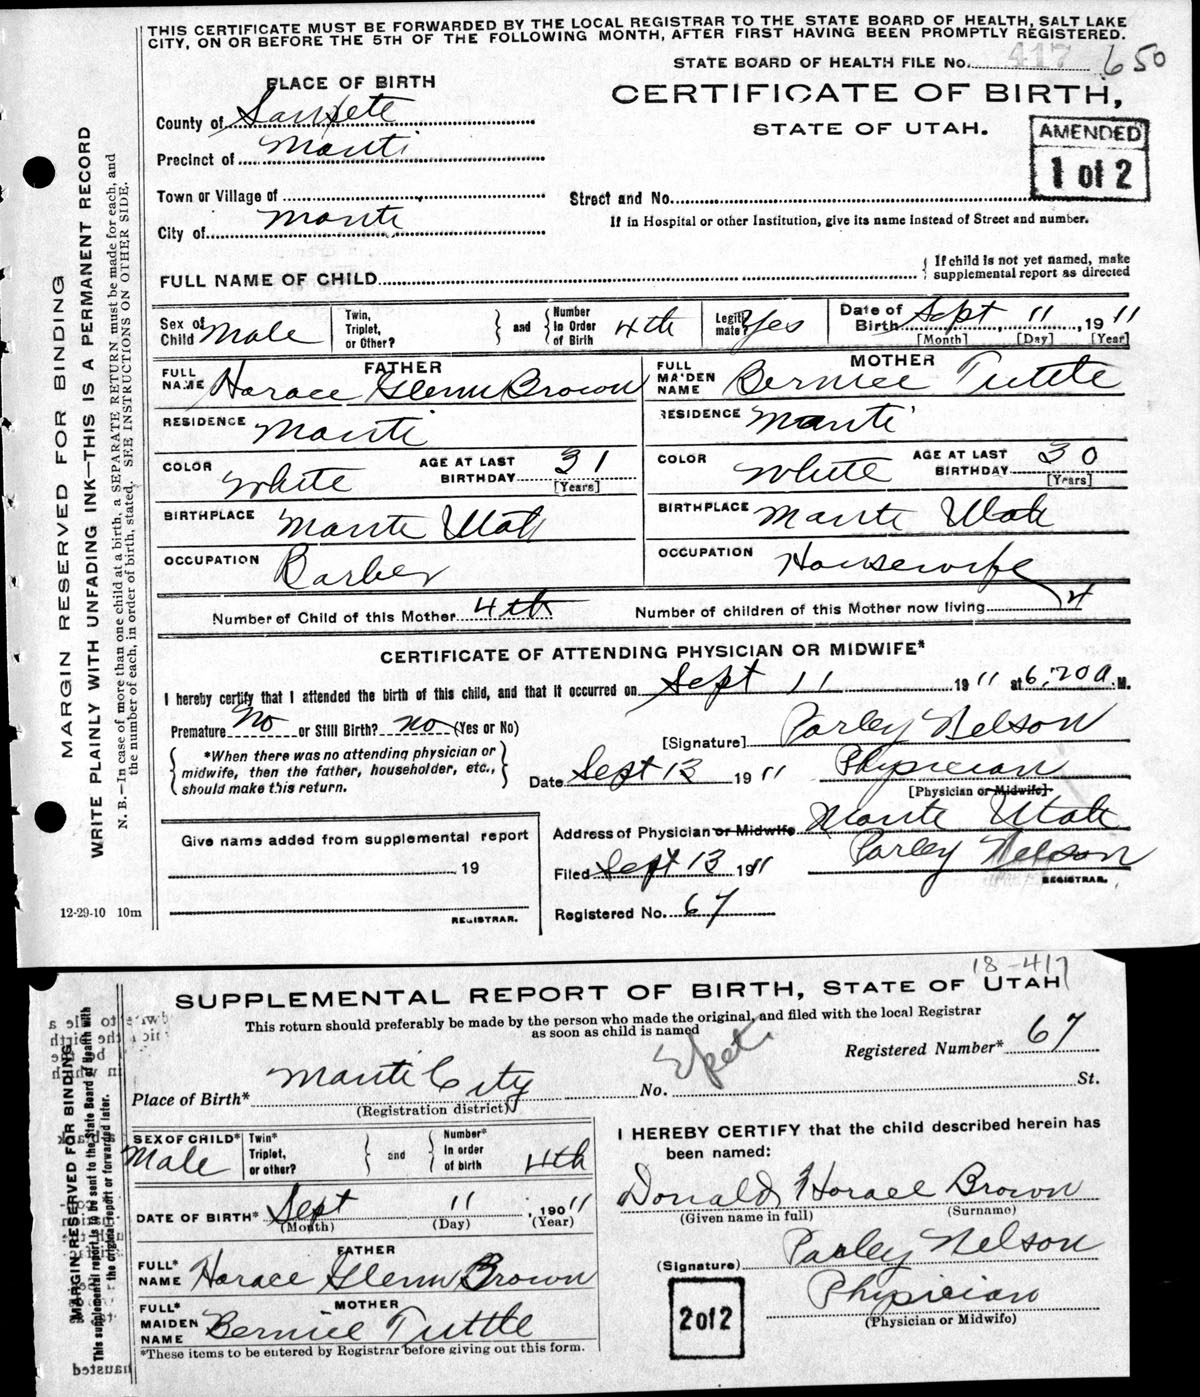 THIS CERTIFICATE MUST BE FORWARDED BY THE LOCAL REGISTRAR TO THE STATE BOARD OF HEALTH, SALT LAKE
CITY, ON OR BEFORE THE 5TH OF THE FOLLOWING MONTH, AFTER FIRST HAVING BEEN PROMPTLY REGISTERED.
STATE BOARD OF HEALTH FILE No. 417 650
PLACE OF BIRTH
CERTIFICATE OF BIRTH,
STATE OF UTAH.
AMENDED
1 of 2
County of Sanpete
Precinct of Manti
Town or Village of
Street and No.
City of Manti
If in Hospital or other Institution, give its name instead of Street and number.
FULL NAME OF CHILD
{ If child is not yet named, make
supplemental report as directed
Sex of Child Male
Twin, Triplet, or Other? } and { Number in Order of Birth 4th
Legitimate? Yes
Date of Birth Sept 11, 1911
[Month] [Day] [Year]
FATHER
FULL NAME Horace Glenn Brown
MOTHER
FULL MAIDEN NAME Berniece Tuttle
RESIDENCE Manti
RESIDENCE Manti
COLOR White AGE AT LAST BIRTHDAY 31 [Years]
COLOR White AGE AT LAST BIRTHDAY 30 [Years]
BIRTHPLACE Manti Utah
BIRTHPLACE Manti Utah
OCCUPATION Barber
OCCUPATION Housewife
Number of Child of this Mother 4th Number of children of this Mother now living 4
CERTIFICATE OF ATTENDING PHYSICIAN OR MIDWIFE*
I hereby certify that I attended the birth of this child, and that it occurred on Sept 11 1911 at 6,20 a. M.
Premature No or Still Birth? no (Yes or No)
[Signature] Parley Nelson
{ *When there was no attending physician or
midwife, then the father, householder, etc.,
should make this return. }
Date Sept 13 1911 Physician
[Physician or Midwife]
Address of Physician or Midwife Manti Utah
Give name added from supplemental report
19
REGISTRAR.
Filed Sept 13 1911 Parley Nelson
REGISTRAR.
Registered No. 67
12-29-10 10m
MARGIN RESERVED FOR BINDING
WRITE PLAINLY WITH UNFADING INK—THIS IS A PERMANENT RECORD
N. B.—In case of more than one child at a birth, a SEPARATE RETURN must be made for each, and
the number of each, in order of birth, stated. SEE INSTRUCTIONS ON OTHER SIDE.
18-417
SUPPLEMENTAL REPORT OF BIRTH, STATE OF UTAH
This return should preferably be made by the person who made the original, and filed with the local Registrar
as soon as child is named
Registered Number* 67
Place of Birth* Manti City No. St.
(Registration district)
SEX OF CHILD* Male
Twin* Triplet, or other? } and { Number* in order of birth 4th
DATE OF BIRTH* Sept 11, 19011
(Month) (Day) (Year)
FATHER
FULL* NAME Horace Glenn Brown
MOTHER
FULL* MAIDEN NAME Berniece Tuttle
*These items to be entered by Registrar before giving out this form.
I HEREBY CERTIFY that the child described herein has
been named:
Donald Horace Brown
(Given name in full) (Surname)
(Signature) Parley Nelson
Physician
(Physician or Midwife)
2 of 2
MARGIN RESERVED FOR BINDING
This supplemental report to be sent to the State Board of Health with
the original report or forwarded later.